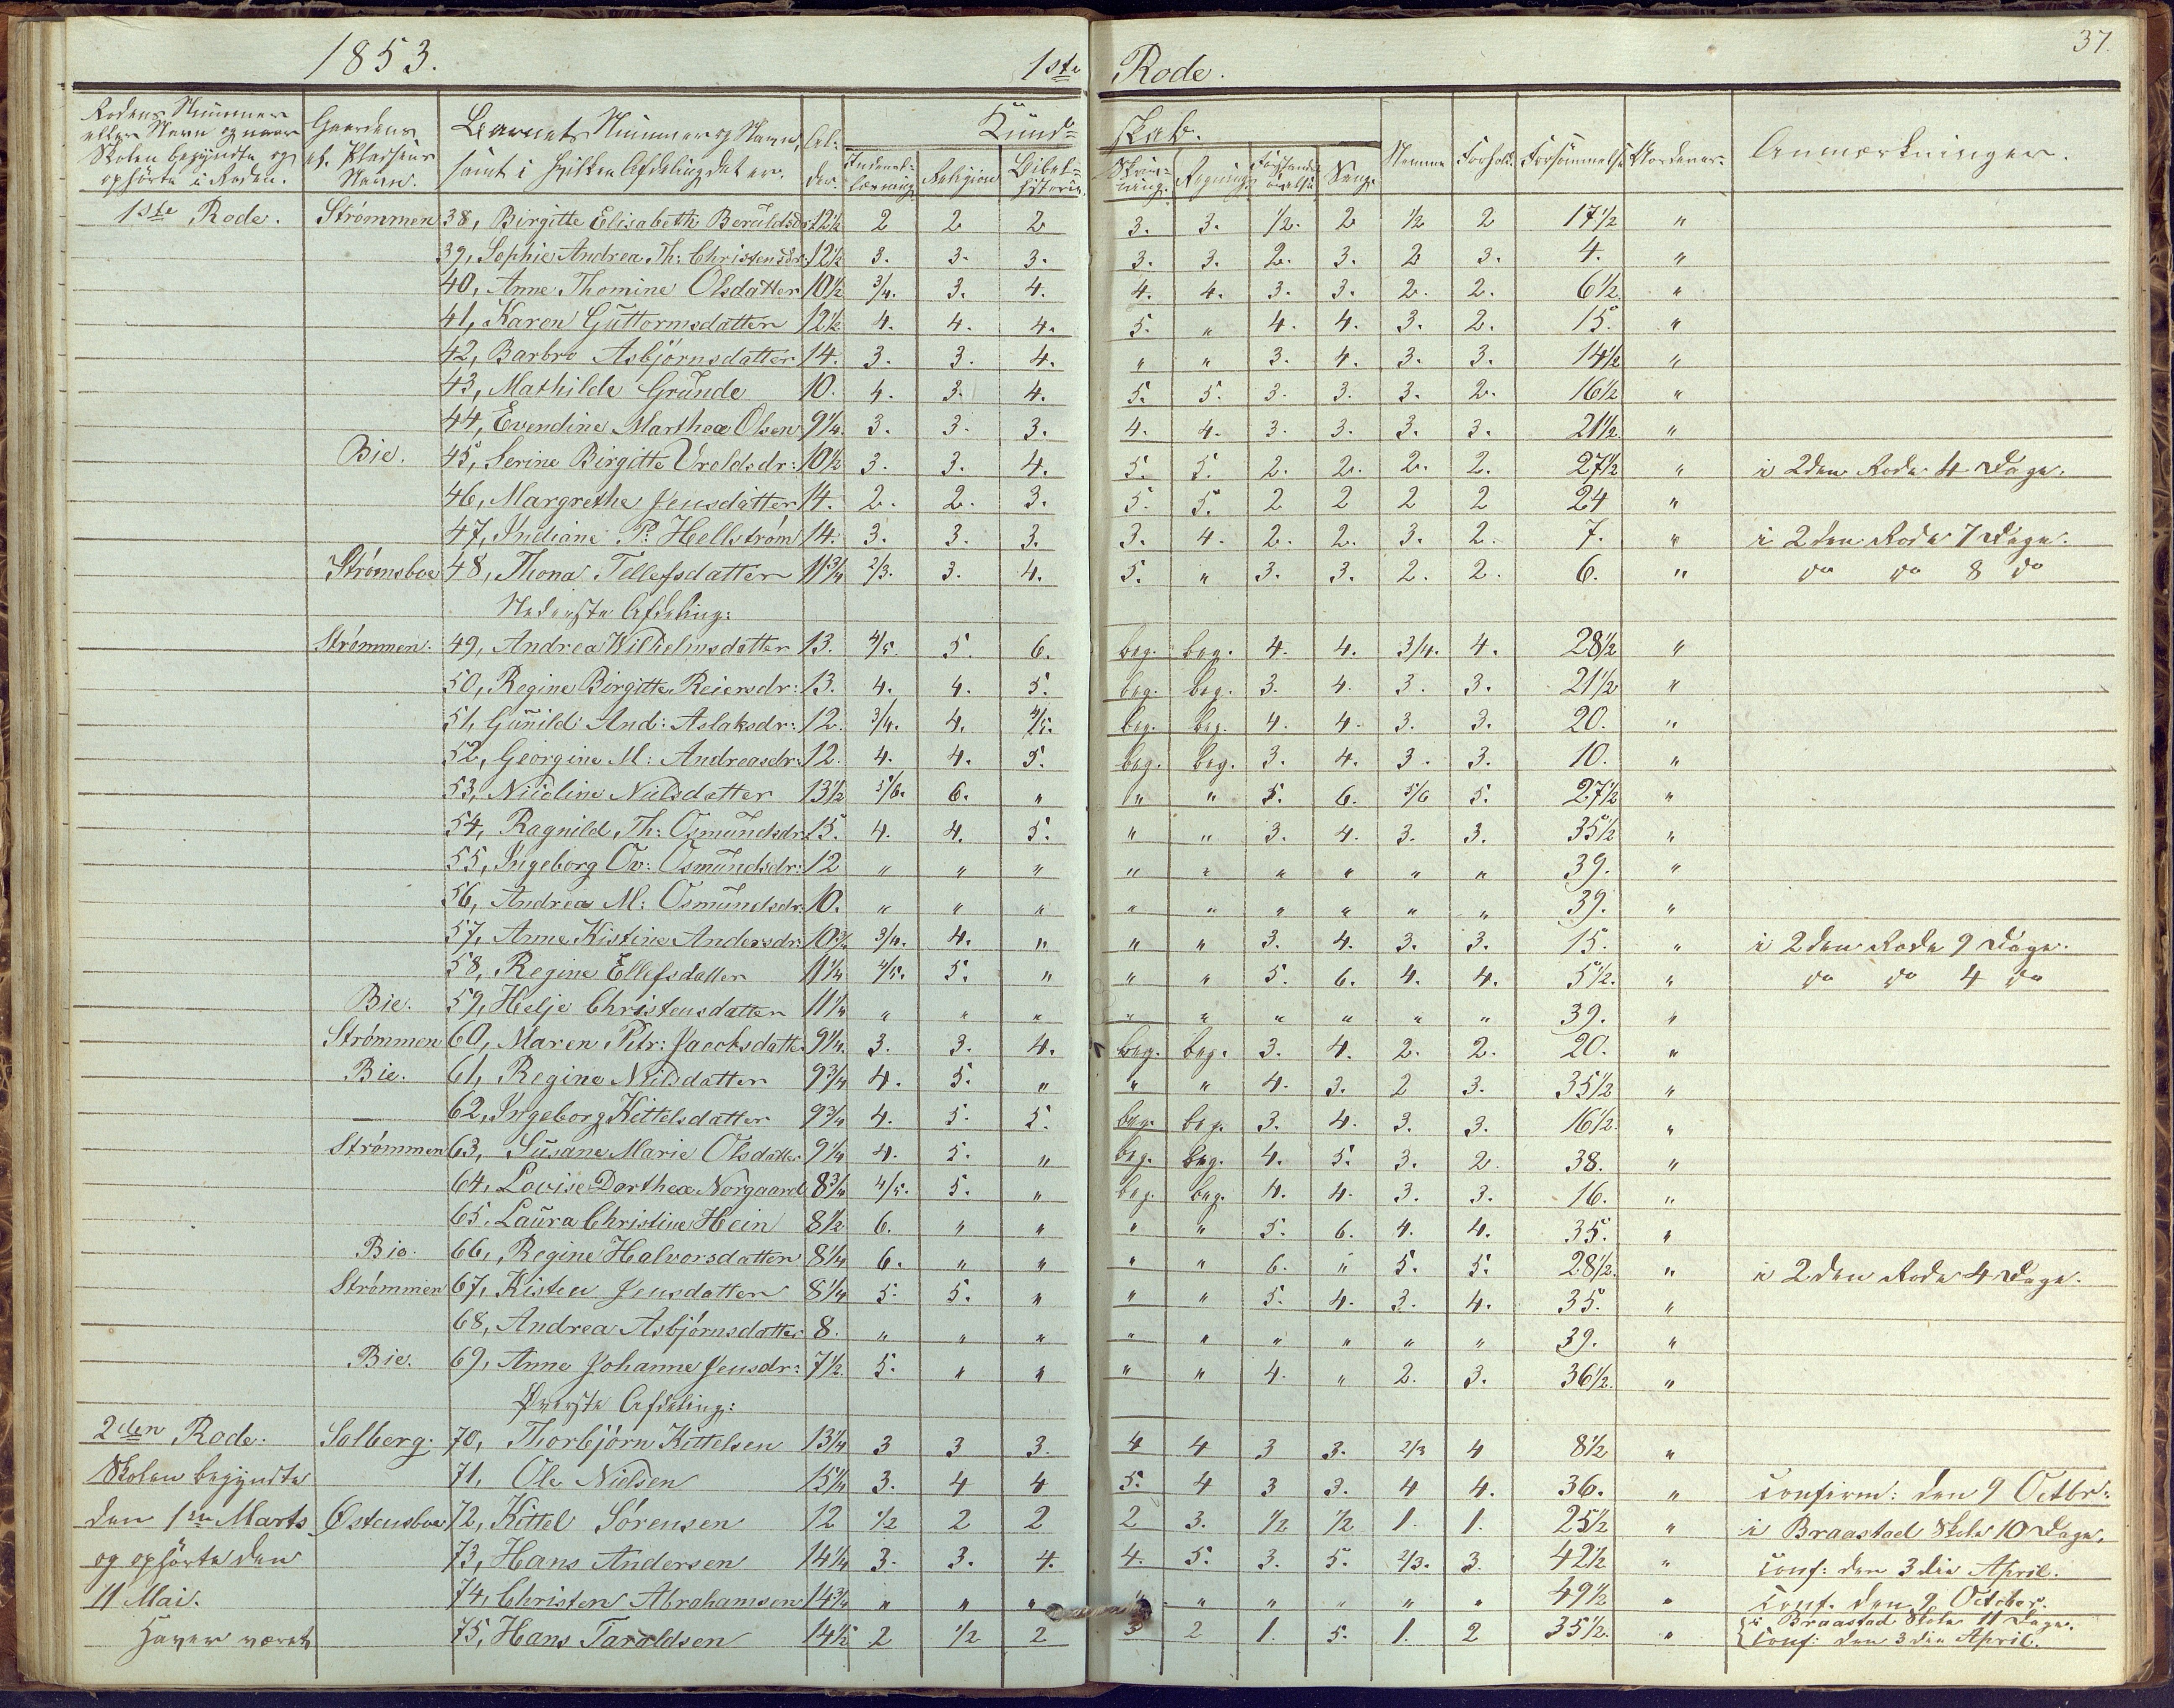 1853. 1ste Rode. 37.
Rodens Nummer eller Navn og naar Skolen begyndte og ophørte i Roden. | Gaardens el. Pladsens Navn. | Barnets Nummer og Navn, samt i hvilken Afdeling det er. | Al-der. | Kund-skab. | Nemme | Forhold | Forsømmelse | Anmærkninger.
Indenad-læsning | Religion | Bibel-historie | Skriv-ning | Regning | Forstands-øvelse | Sang.
1ste Rode. Strømmen 38, Birgitte Elisabeth 12½ 2 2 2 3. 3. ½. 2 ½ 2 17½ "
39, Sophie Andrea Th: Christensdr: 12½ 3. 3. 3. 3. 3. 2. 3. 2 3. 4. "
40, Anne Thomine Olsdatter 10½ 3/4. 3. 4. 4. 4. 3. 3. 2. 2. 6½ "
41, Karen Guttormsdatter 12½ 4. 4. 4. 5. " 4. 4. 3. 2. 15. "
42, Barbro Asbjørnsdatter 14. 3. 3. 4. " " 3. 4. 3. 3. 14½ "
43, Mathilde Grunde 10. 4. 3. 4. 5. 5. 3. 3. 3. 2. 16½ "
44, Evendine Marthea Olsen 9¼. 3. 3. 3. 4. 4. 3. 3. 3. 3. 21½ "
Bie. 45, Serine Birgitte 10½ 3. 3. 4. 5. 5. 2. 2. 2. 2. 27½ " i 2den Rode 4 Dage.
46, Margrethe Jensdatter 14. 2. 2. 3. 5. 5. 2 2 2 2 24 "
47, Indiane P. Hellstrøm 14. 3. 3. 3. 3. 4. 2. 2. 3. 2. 7. " i 2den Rode 7 Dage.
Strømsboe 48, Thona Tellefsdatter 11¾ 2/3. 3. 4. 5. " 3. 3. 2. 2. 6. " do do 8 do
Nederste Afdeling:
Strømmen. 49, Andrea Wilhelmsdatter 13. 4/5. 5. 6. beg. beg. 4. 4. 3/4. 4. 28½ "
50, Regine Birgitte Reiersdr: 13. 4. 4. 5. beg. beg. 3. 4. 3. 3. 21½ "
51, Gunild And: Aslaksdr: 12. 3/4. 4. 4/5. beg. beg. 4. 4. 3. 3. 20. "
52, Georgine M: Andreasdr: 12. 4. 4. 5. beg. beg. 3. 4. 3. 3. 10. "
53, Nicoline Nielsdatter 13½ 5/6. 6. " " " 5. 6. 5/6 5. 27½ "
54, Ragnild Th: Osmundsdr: 15. 4. 4. 5. " " 3. 4. 3. 3. 35½ "
55, Ingeborg Ov: Osmundsdr: 12 " " " " " " " " " 39. "
56, Andrea M: Osmundsdr: 10. " " " " " " " " " 39. "
57, Anne Kistine Andersdr: 10¾ 3/4. 4. " " " 3. 4. 3. 3. 15. " i 2den Rode 9 Dage.
58, Regine Ellefsdatter 11¼ 4/5. 5. " " " 5. 6. 4. 4. 5½. " do do 4 do
Bie. 59, Helje Christensdatter 11¼ " " " " " " " " " 39. "
Strømmen 60, Maren Petr: 9¼. 3. 3. 4. beg. beg. 3. 4. 2. 2. 20. "
Bie. 61, Regine Nielsdatter 9¾ 4. 5. " " " 4. 3. 2 3. 35½ "
— 62, Ingeborg Kittelsdatter 9¾ 4. 5. 5. beg. beg. 3. 4. 3. 3. 16½. "
Strømmen 63, Susane Marie Olsdatter 9¼ 4. 5. " beg. beg. 4. 5. 3. 2. 38. "
64, Lovise Dorthea Norgaard 8¾ 4/5. 5. " beg. beg. 4. 4. 3. 3. 16. "
65. Laura Christine Hein 8½ 6. " " " " 5. 6. 4. 4. 35. "
Bie. 66, Regine Halvorsdatter 8¼ 6. " " " " 6. " 5. 5. 28½. " i 2den Rode 4 Dage.
Strømmen 67, Kisten Jensdatter 8¼ 5. 5. " " " 5. 4. 3. 4. 35. "
68, Andrea Asbjørnsdatter 8. " " " " " " " " " 39. "
Bie. 69, Anne Johanne Jensdr: 7½. 5. " " " " 4. " 2. 3. 36½. "
Øverste Afdeling:
2den Rode. Solberg. 70, Thorbjørn Kittelsen 13¼ 3 3 3. 4 4 3 3. 2/3 4 8½ "
Skolen begyndte 71, Ole Nielsen 15¼ 3. 4 4 5. 4 3 3. 4 4. 36. " Conferm: den 9 Octbr:
den 1ste Marts Østensboe 72, Kittel Sørensen 12 ½ 2 2 2 3. ½ ½ 1. 1. 25½ " i Braastad Skole 10 Dage,
og ophørte den 73, Hans Andersen 14¼ 3. 3. 4. 4. 5. 3. 5. 2/3. 3. 42½ " Conf: den 3die April.
11 Mai. 74, Christen Abrahamsen 14¾ " " " " " " " " 49½ " Conf. den 9 October.
Haver været 75, Hans Taraldsen 14½ 2 ½ 2 3 2 1. 5. 1. 2 35½. " { i Braastad Skole 11 Dage.
Conf: den 3die April.